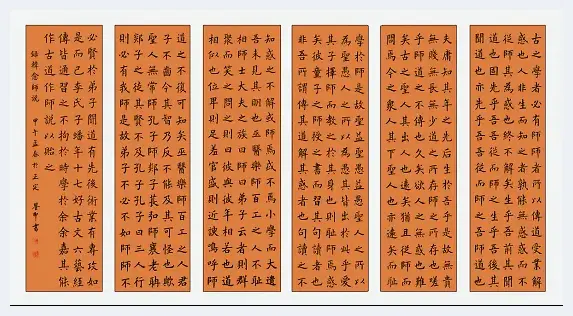 古之學者必有師師者所以傳道受業解
惑也人非生而知之者孰能無惑惑而不
從師其為惑也終不解矣生乎吾前其聞
道也固先乎吾吾從而師之生乎吾後其
聞道也亦先乎吾吾從而師之吾師道也
夫庸知其年之先后生於吾乎是故無貴
無賤無長無少道之所存師之所存也嗟
乎師道之不傳也久矣欲人之無惑也難
矣古之聖人其出人也遠矣猶且從師而
問焉今之眾人其下聖人也亦遠矣而恥
學於師是故聖益聖愚益愚聖人之所以
為聖愚人之所以為愚其皆出於此乎愛
其子擇師而教之於其身也則恥師焉惑
矣彼童子之師授之書而習其句讀者也
非吾所謂傳其道解其惑者也句讀之不
知惑之不解或師焉或不焉小學而大遺
吾未見其明也巫醫樂師百工之人不恥
相師士大夫之族曰師曰弟子云者則群
聚而笑之問之則曰彼與彼年相若也道
相似也位卑則足羞官盛則近諛嗚呼師
道之不復可知矣巫醫樂師百工之人君
子不齒今其智乃反不能及其可怪也歟
聖人無常師孔子師郯子萇弘師襄老聃
郯子之徒其賢不及孔子孔子曰三人行
則必有我師是故弟子不必不如師師不
必賢於弟子聞道有先後術業有專攻如
是而已李氏子蟠年十七好古文六藝經
傳皆通習之不拘於時學於余余嘉其能
作古道作師說以貽之
錄韓愈師說 甲午孟春於正定 書